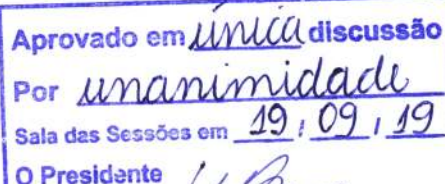 Aprovado em única discussão
Por unanimidade
Sala das Sessões em 19 / 09 / 19
O Presidente